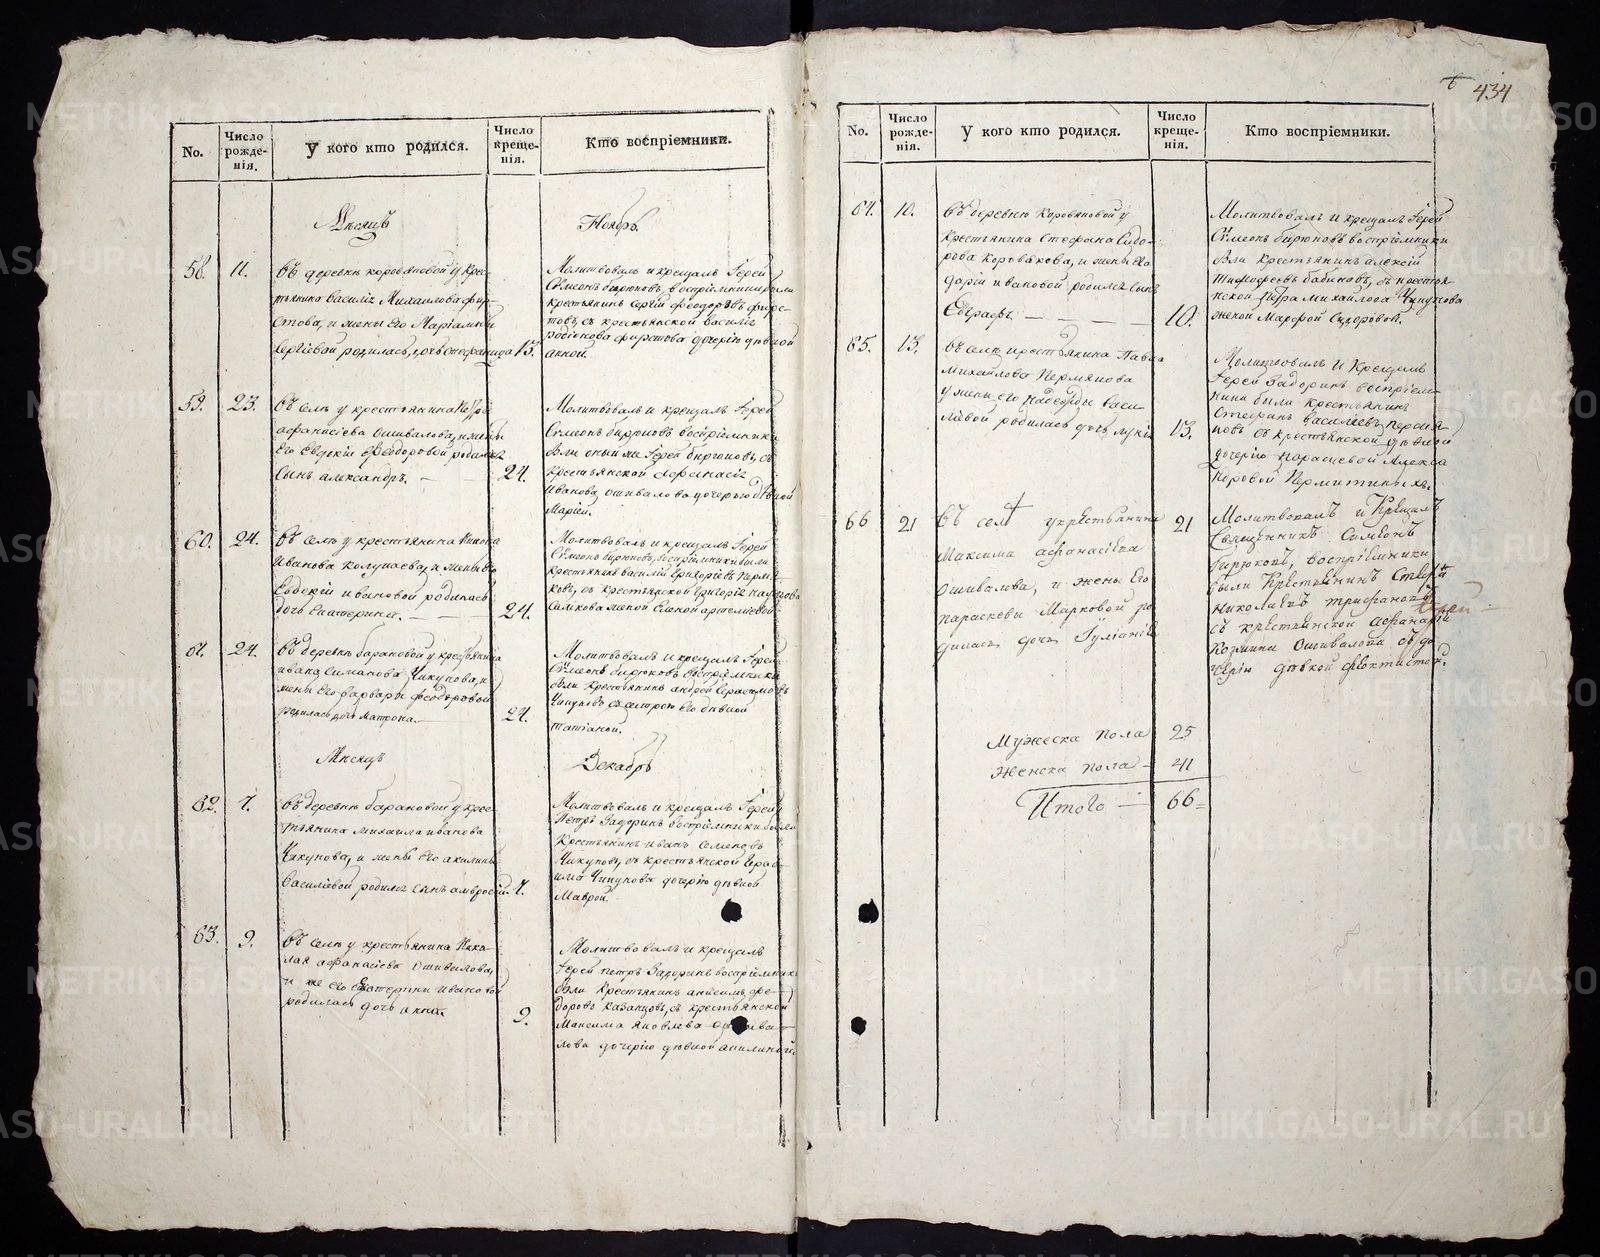 434
No.
Число рожде-нія.
У кого кто родился.
Число креще-нія.
Кто воспріемники.
Мѣсяцъ
Ноябрь.
58. 11.
Въ деревнѣ коробановой у крес-
тьянина Василія Михаилова фир-
стова, и жены его Маріамны
Сергіевой родилась дочь Стефанида 13.
Молитвовалъ и крещалъ Іерей
Сѵмеонъ бирюковъ, воспріемники были
крестьянинъ Сергій Феодоровъ фирс-
товъ, съ крестьянской Василія
Родіонова фирстова дочерію дѣвкой
анной.
59. 23.
Въ селѣ у крестьянина Петра
афанасіева Ошивалова, и жены
его Евдокіи Феодоровой родился
Сынъ александръ. — 24.
Молитвовалъ и крещалъ Іерей
Сѵмеонъ бирюковъ воспріемники
были оный же Іерей бирюковъ, съ
крестьянской Афанасія
Иванова, ошивалова дочерью дѣвкой
Маріей.
60. 24.
Въ селѣ у крестьянина
Иванова Колупаева, и жены его
Евдокіи ивановой родилась
дочь Екатерина. — — — 24.
Молитвовалъ и крещалъ Іерей
Сѵмеонъ бирюковъ, воспріемники были
крестьянинъ василій Григорьевъ
ковъ, съ крестьянской Григорія
женой Еленой артеміевой
61. 24.
Въ деревнѣ барановой у крестьянина
ивана Симанова Чикунова, и
жены его варвары феодоровой
родилась дочь Матрона. — 24.
Молитвовалъ и крещалъ Іерей
Сѵмеонъ бирюковъ воспріемники
были крестьянинъ андрей Герасимовъ
Чикуновъ съ сестрою его дѣвкой
татіаной.
Мѣсяцъ
Декабрь
62. 7.
Въ деревнѣ барановой у крес-
тьянина михаила иванова
Чикунова, и жены его акилины
Василіевой родился сынъ амвросій. 7.
Молитвовалъ и крещалъ Іерей
Петръ Задоринъ воспріемники были
Крестьянинъ иванъ Семеновъ
Чикуновъ, съ крестьянской Герас-
има Чикунова дочерію дѣвкой
Маврой.
63. 9.
Въ селѣ у крестьянина Нико-
лая афанасіева Ошивалова,
и же его Екатерины ивановой
родилась дочь анна. 9.
Молитвовалъ и крещалъ
Іерей петръ Задоринъ воспріемники
были Крестьянинъ анисимъ фе-
доровъ Казанцовъ, съ крестьянской
Максима Яковлева ошива-
лова дочерію дѣвкой акилиной
No.
Число рожде-нія.
У кого кто родился.
Число креще-нія.
Кто воспріемники.
64. 10.
Въ деревнѣ Коробановой у
Крестьянина Стефана Сидо-
рова Коробакова, и жены его
дарьи ивановой родился сынъ
Евграфъ. — — — — 10.
Молитвовалъ и крещалъ Іерей
Сѵмеонъ бирюковъ воспріемники
были крестьянинъ алексій
тимофеевъ бабиновъ, съ крестья-
нской Петра михайлова Чикунова
женой Марфой Сидоровой.
65. 13.
Въ селѣ крестьянина Павла
михайлова Пермякова
у жены его надежды Васи-
лѣвой родилась дочь лукія 13.
Молитвовалъ и Крещалъ
Іерей Задоринъ воспріем-
ники были крестьянинъ
Стефанъ василіевъ пермя-
ковъ съ крестьянской дѣвкой
дочерію парасковой Алекса
ндровой Пермитиныхъ.
66 21
Въ селѣ у крестьянина 21
Максима афанасіева
Ошивалова, и жены его
параскевы Марковой ро-
дилась дочь Іуліанія
Молитвовалъ и Крещалъ
Священникъ Симеонъ
бирюковъ, воспріемники
были Крестьянинъ Стефанъ
николаевъ трифановъ
съ крестьянской Афанасія
Козмина Ошивалова съ до-
черію дѣвкой феоктистой.
Мужеска пола 25
Женска пола — 41
Итого — 66=